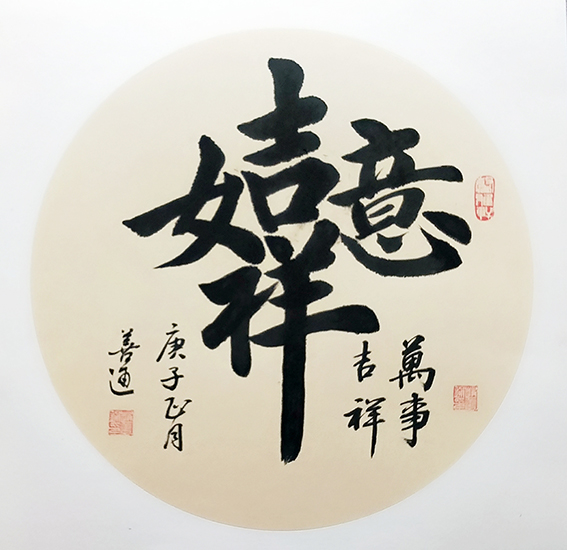 吉祥如意
萬事
吉祥
庚子正月
善通